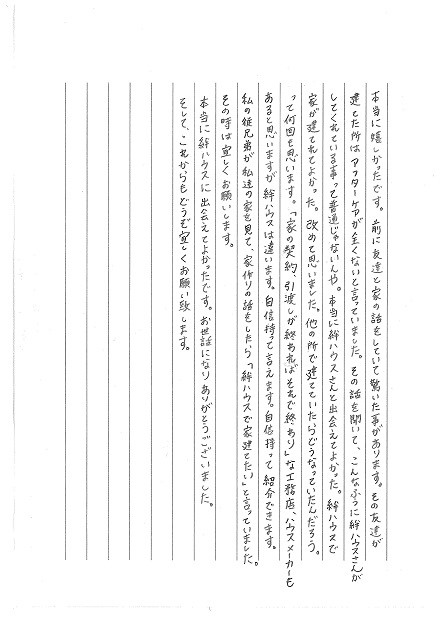 本当に嬉しかったです。前に友達と家の話をしていて驚いた事があります。その友達が
建てた所はアフターケアが全くないと言っていました。その話を聞いて、こんなふうに絆ハウスさんが
してくれている事って普通じゃないんや。本当に絆ハウスさんと出会えてよかった。絆ハウスで
家が建てれてよかった。改めて思いました。他の所で建てていたらどうなっていたんだろう。
って何回も思います。「家の契約、引渡しが終わればそれで終わり」な工務店、ハウスメーカーも
あると思いますが絆ハウスは違います。自信持って言えます。自信持って紹介できます。
私の従兄弟が私達の家を見て、家作りの話をしたら「絆ハウスで家建てたい」と言っていました。
その時は宜しくお願いします。
本当に絆ハウスに出会えてよかったです。お世話になりありがとうございました。
そして、これからもどうぞ宜しくお願い致します。